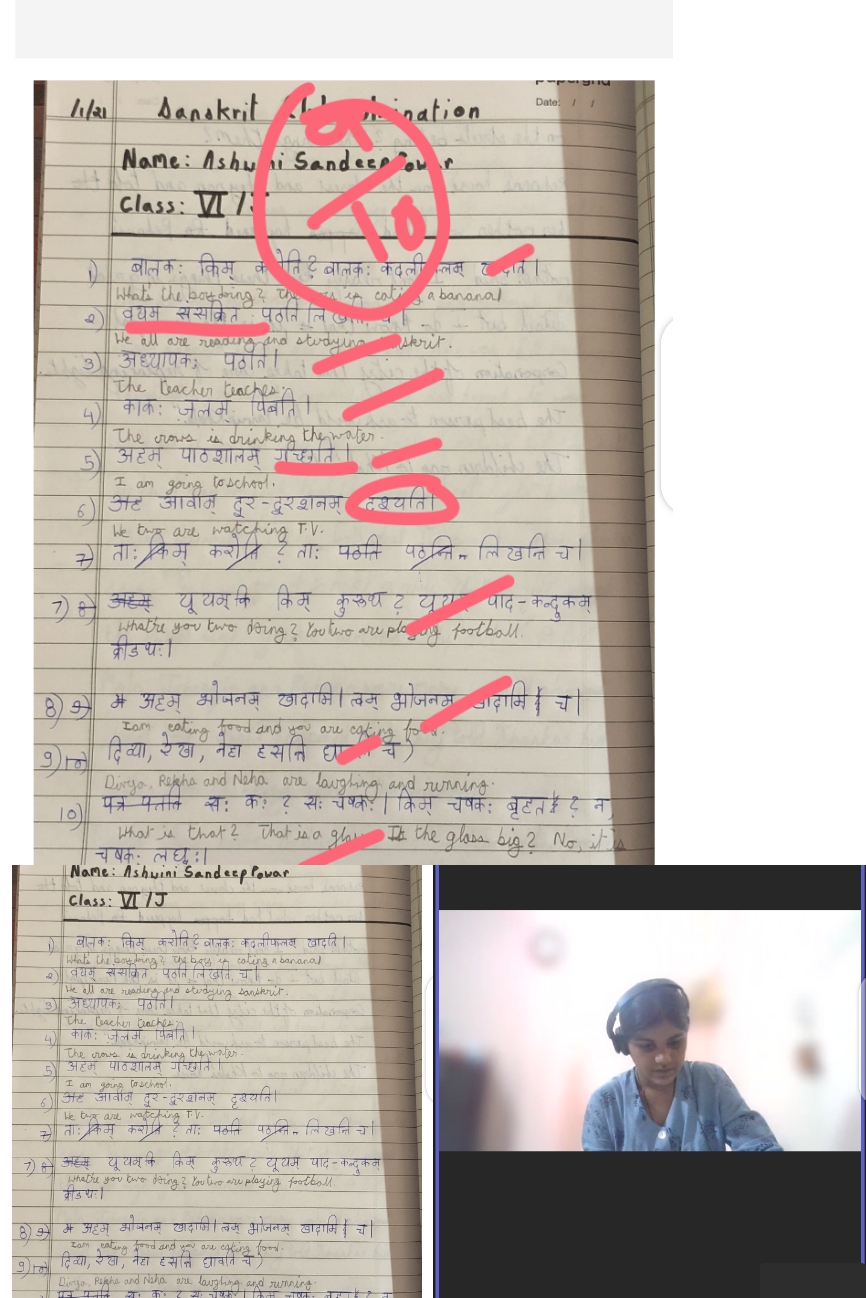 papergrid
Date: / /
/1/21 Sanskrit
Name: Ashwini Sandeep Powar
Class: VI / J
9/10
1) बालक: किम् करोति? बालक: कदलीफलम् खादति।
What's the boy doing? The boy is eating a banana
2) वयम् ससक्रित पठति लिखति च।
We all are reading and studying sanskrit.
3) अध्यापक: पठति।
The teacher teaches.
4) काक: जलम् पिबति।
The crows is drinking the water.
5) अहम् पाठशालम् गच्छति।
I am going to school.
6) अह आवाम् दुर-दुरशनम् दृश्यति।
We two are watching T.V.
7) ता: किम् करोति ? ता: पठति पठन्ति लिखनि च।
7) 8) अहम् यूयम् कि किम् कुरुथ ? यूयम् पाद-कन्दुकम्
What're you two doing? You two are playing football.
क्रीडथ:।
8) 9) म अहम् भोजनम् खादामि। त्वम् भोजनम् खादामि च।
I am eating food and you are eating food.
9) 10) दिव्या, रेखा, नेहा हसति धावति च)
Divya, Rekha and Neha are laughing and running.
10) पत्र पतति स: क: ? स: चषक:। किम् चषक: बृहत ? न,
What is that? That is a glass. Is the glass big? No, it is
चषक: लघु:।
Name: Ashwini Sandeep Powar
Class: VI / J
1) बालक: किम् करोति? बालक: कदलीफलम् खादति।
What's the boy doing? The boy is eating a banana
2) वयम् ससक्रित पठति लिखति च।
We all are reading and studying sanskrit.
3) अध्यापक: पठति।
The teacher teaches.
4) काक: जलम् पिबति।
The crows is drinking the water.
5) अहम् पाठशालम् गच्छति।
I am going to school.
6) अह आवाम् दुर-दुरशनम् दृश्यति।
We two are watching T.V.
7) ता: किम् करोति ? ता: पठति पठन्ति लिखनि च।
7) 8) अहम् यूयम् कि किम् कुरुथ ? यूयम् पाद-कन्दुकम्
What're you two doing? You two are playing football.
क्रीडथ:।
8) 9) म अहम् भोजनम् खादामि। त्वम् भोजनम् खादामि च।
I am eating food and you are eating food.
9) 10) दिव्या, रेखा, नेहा हसति धावति च)
Divya, Rekha and Neha are laughing and running.
पत्र पतति स: क: ? स: चषक:। किम् चषक: बृहत ? न,